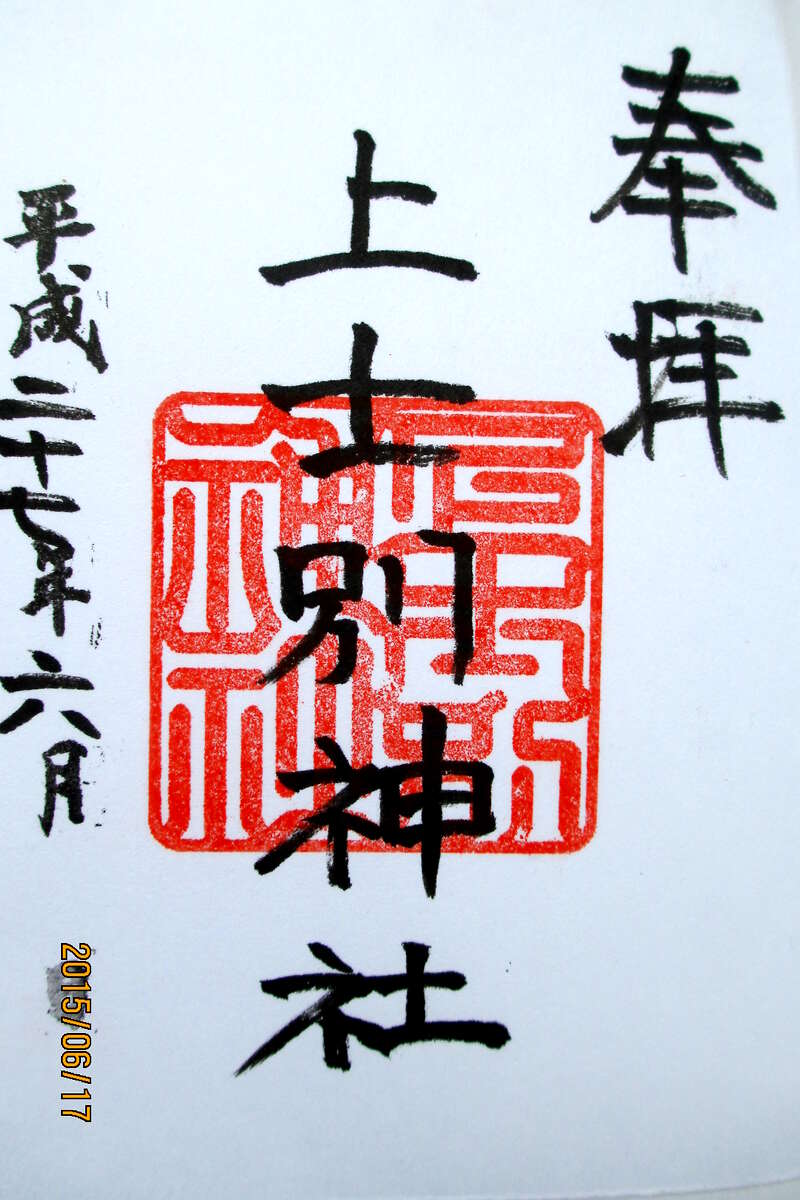 奉拝
上士別神社
平成二十七年六月
2015/06/17